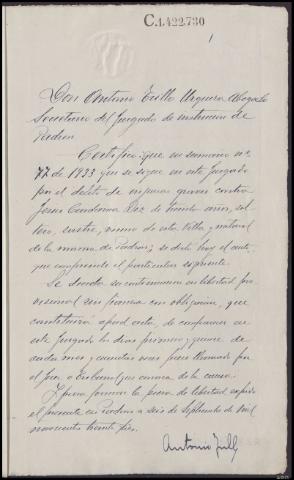 C.1.422.730
1
Don Antonio Abogado
Secretario del Juzgado de instruccion de
Certifico: que en sumario nº
77 de 1933 que se sigue en este Juzgado
por el delito de injurias graves contra
Jesus de treinta años, sol
tero, sastre, vecino de esta Villa, y natural
de la misma de se dictó hoy el auto,
que comprende el particular siguiente
Se decreta su continuacion en libertad pro
visional sin fianza con obligacion, que
constituirá apud acta, de comparecer en
este Juzgado los dias primero y quince de
cada mes y cuantas veces fuere llamado por
el Juez o Tribunal que conozca de la causa.
Y para formar la pieza de libertad expido
el presente en a seis de Septiembre de mil
novecientos treinta y tres.
Antonio